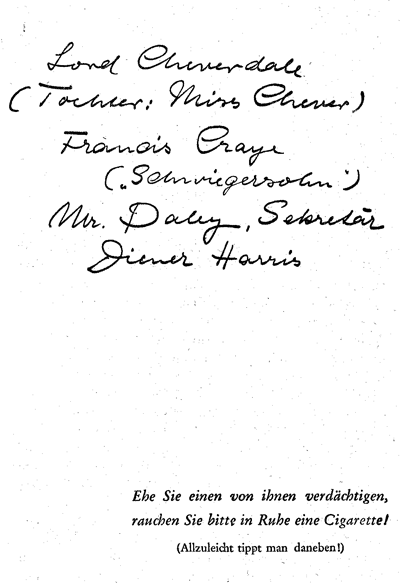 Lord Cheverdale
(Tochter: Miss Chever)
Francis Craye
(„Schwiegersohn")
Mr. Daley, Sekretär
Diener Harris
Ehe Sie einen von ihnen verdächtigen,
rauchen Sie bitte in Ruhe eine Cigarette!
(Allzuleicht tippt man daneben!)